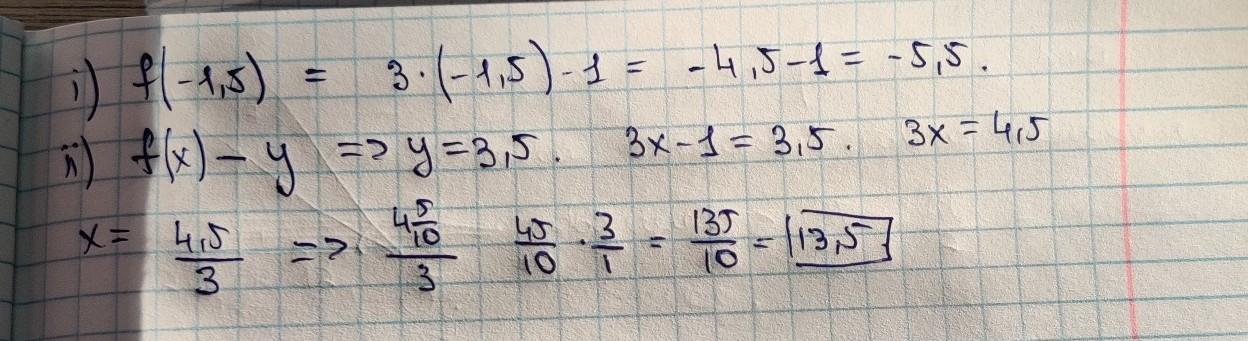 i) f(-1,5) = 3·(-1,5)-1 = -4,5-1 = -5,5.
ii) f(x) - y => y=3,5. 3x-1=3,5. 3x=4,5
x= 4,5/3 => 4 5/10/3 45/10 · 3/1 = 135/10 = 13,5